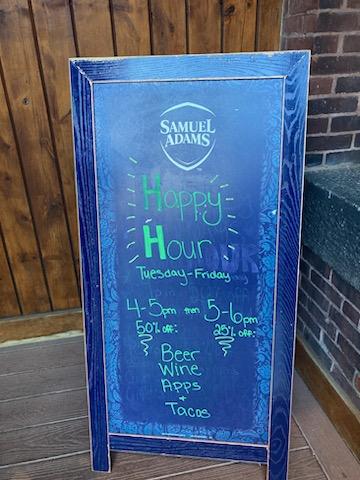 SAMUEL
ADAMS
Happy
Hour
Tuesday-Friday
4-5pm then 5-6pm
50% off: 25% off:
Beer
Wine
Apps
+
Tacos